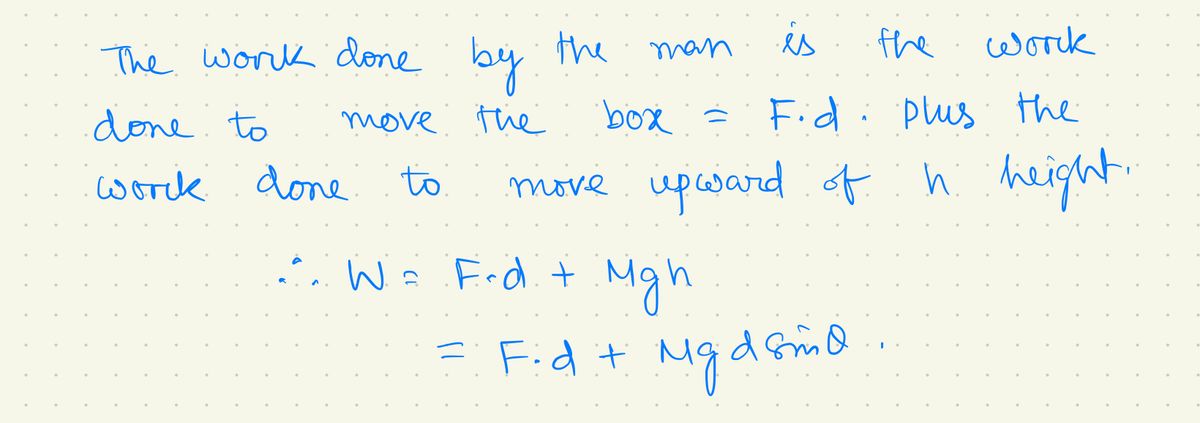 The work done by the man is the work
done to move the box = F.d. plus the
work done to move upward of h height.
∴ W = F.d + Mgh
= F.d + Mg d sinθ.